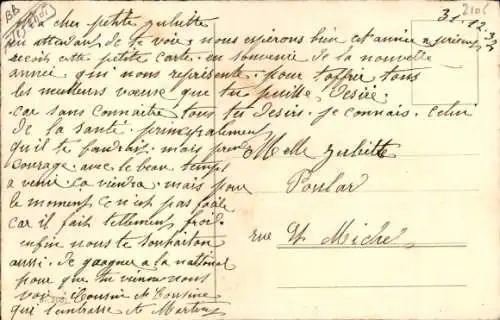 31-12-37
Ma cher petite Juliette
en attendant de te voir, nous espérons bien cet année a présent
recoit cette petite carte en souvenir de la nouvelle
année qui nous représente pour t'offrir tous
les meilleurs vœux que tu puisse désiré
car sans connaitre tous tu désirs je connais celui
de la santé principalement
qu'il te faudrait mais prend
courage avec le beau temps
a venir ca viendra mais pour
le moment ce n'est pas facile
car il fait tellement froid
enfin nous te souhaiton
aussi de gagner a la national
pour que tu vienne nous
voir Cousin et Cousine
qui t'embrasse
Melle Juliette
Poular
rue St Michel